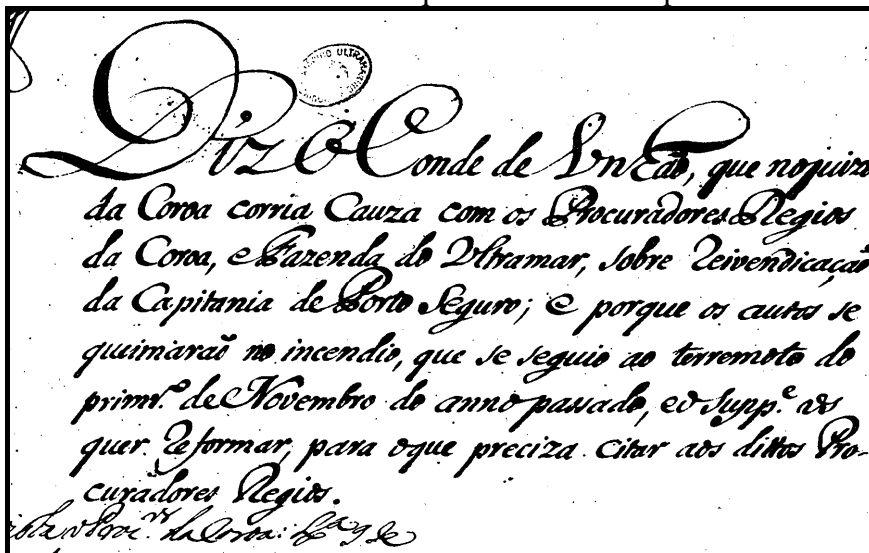 Diz O Conde de Unhaõ, que nojuizo
da Coroa corria Cauza com os Procuradores Regios
da Coroa, e Fazenda do Ultramar, sobre Reivendicaçaõ
da Capitania de Porto Seguro; e porque os autos se
queimaraõ no incendio, que se seguio ao terremoto do
primr.º de Novembro do anno passado, eo Supp.e os
quer Reformar, para oque preciza citar aos dittos Pro-
curadores Regios.
da Coroa: